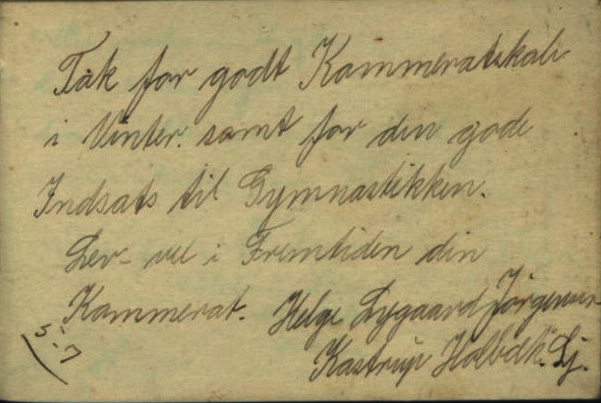 Tak for godt Kammeratskab
i Vinter. samt for den gode
Indsats til Gymnastikken.
Lev-vel i Fremtiden din
Kammerat. Helge Lygaard Jörgensen
Kastrup Holbæk. Lj.
5-7